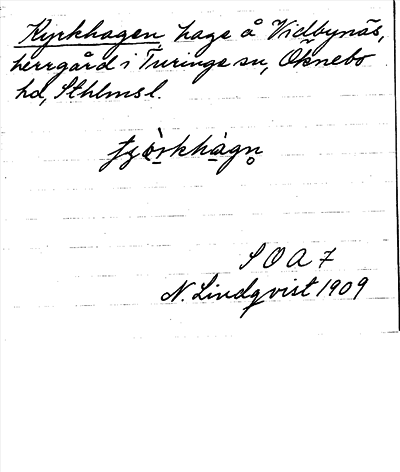 Kyrkhagen, hage å Vidbynäs,
herrgård i Turinge sn, Öknebo
hd, Sthlmsl.
S O A 7
N. Lindqvist 1909